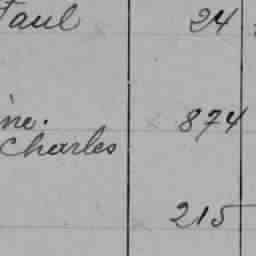 Paul 24
ne. 874
Charles
215